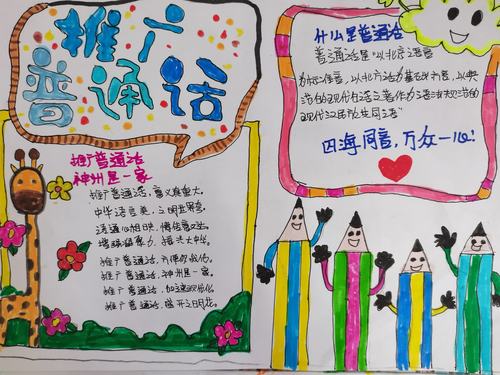 推广
普通话
推广普通话
神州是一家
推广普通话，意义真重大。
中华语言美，文明
沟通心相映，
增强凝聚力，振兴大中华。
推广普通话，
推广普通话，神州是一家。
推广普通话，加速现代化
推广普通话，盛开文明花。
什么是普通话
普通话是"以北京语音
为标准音，以北方话为基础方言，以典
范的现代白话文著作为语法规范的
现代汉民族共同语"
四海同音，万众一心！